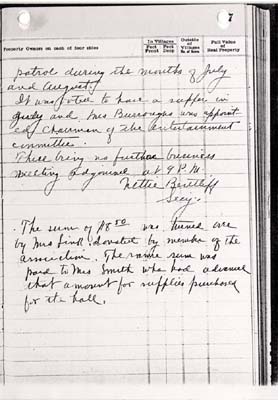 7
Property Owners on each of four sides
In Villages
Feet Front
Feet Deep
Outside of Villages
No. of Acres
Full Value of Real Property
patrol during the months of July
and August.
It was voted to have a supper in
and Mrs Burroughs was appoint
ed Chairman of the entertainment
committee.
There being no further business
meeting adjourned at 9 P.M.
Nettie
Secy.
The sum of $8.00 was turned over
by Mrs donated by member of the
association. The same sum was
paid to Mrs Smith who had advanced
that amount for supplies purchased
for the hall.